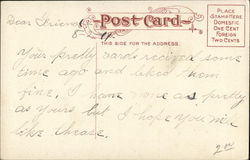 Dear Friend
Post Card
PLACE
STAMP HERE
DOMESTIC
ONE CENT
FOREIGN
TWO CENTS
THIS SIDE FOR THE ADDRESS.
Your pretty cards received some
time ago and liked them
fine. I have none as pretty
as yours but I hope you will
like these.